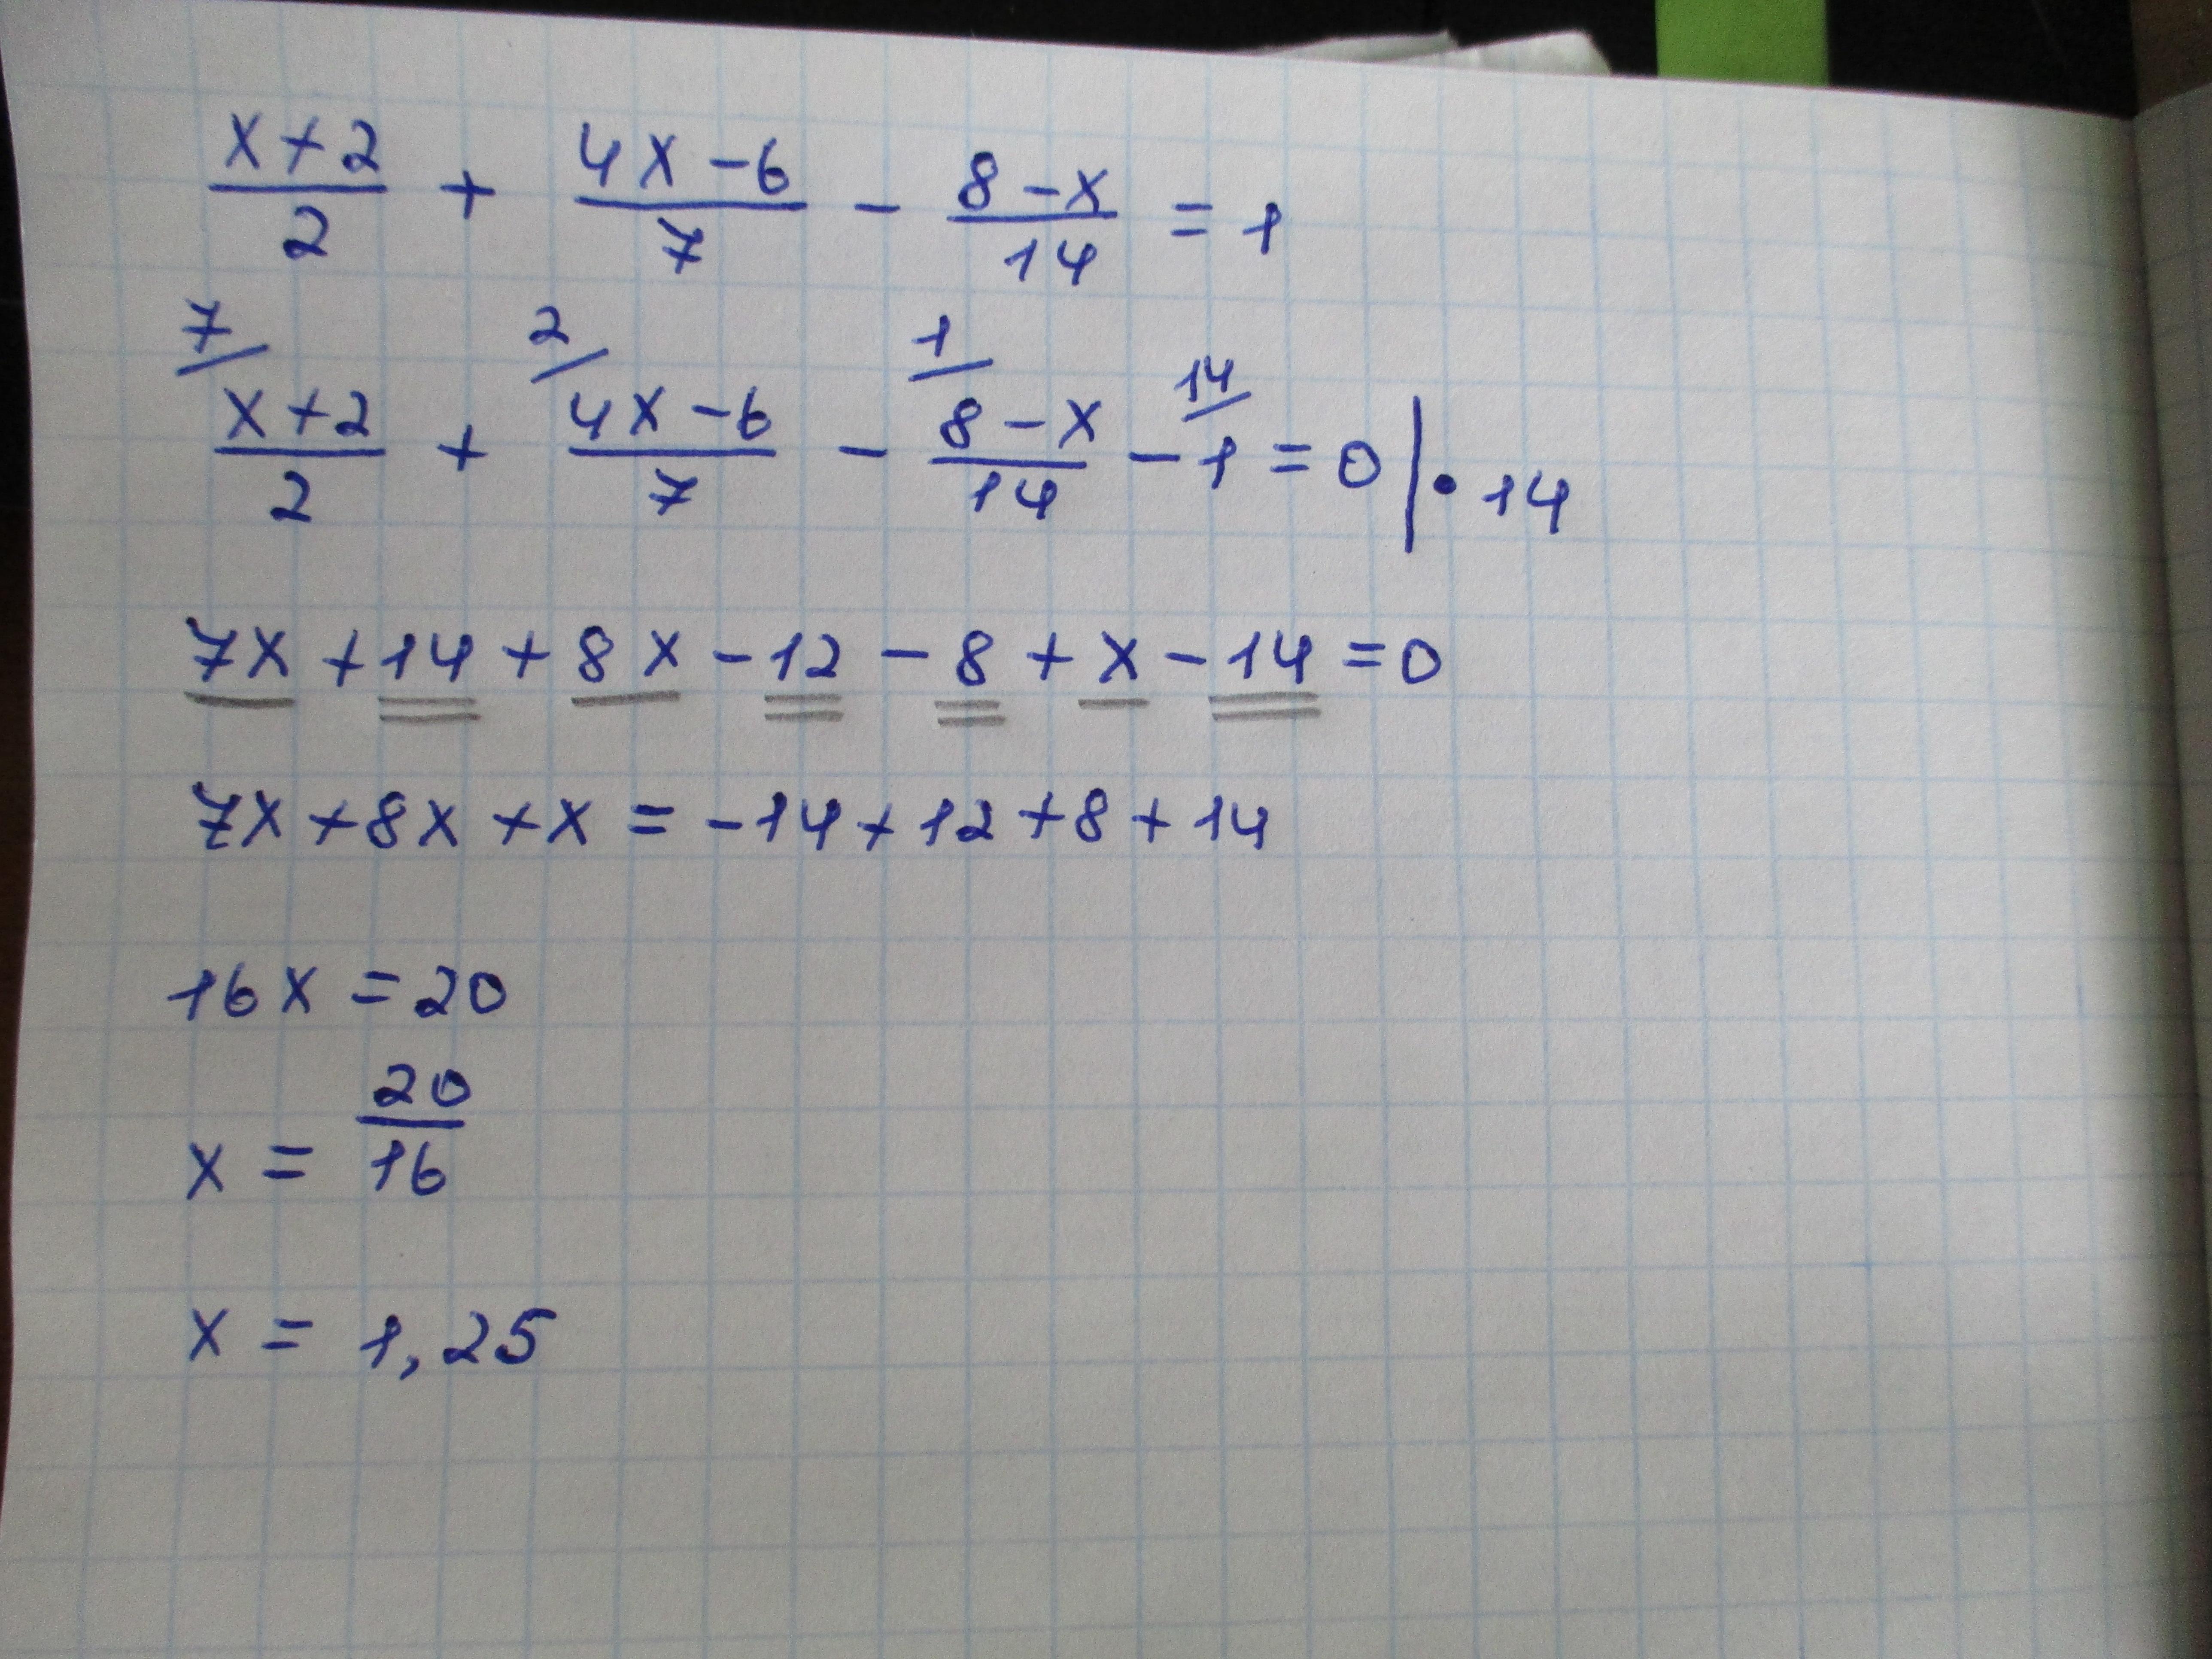 (x+2)/2 + (4x-6)/7 - (8-x)/14 = 1
7/ (x+2)/2 + 2/ (4x-6)/7 - 1/ (8-x)/14 - 14/ 1 = 0 | · 14
7x + 14 + 8x - 12 - 8 + x - 14 = 0
7x + 8x + x = -14 + 12 + 8 + 14
16x = 20
x = 20/16
x = 1,25